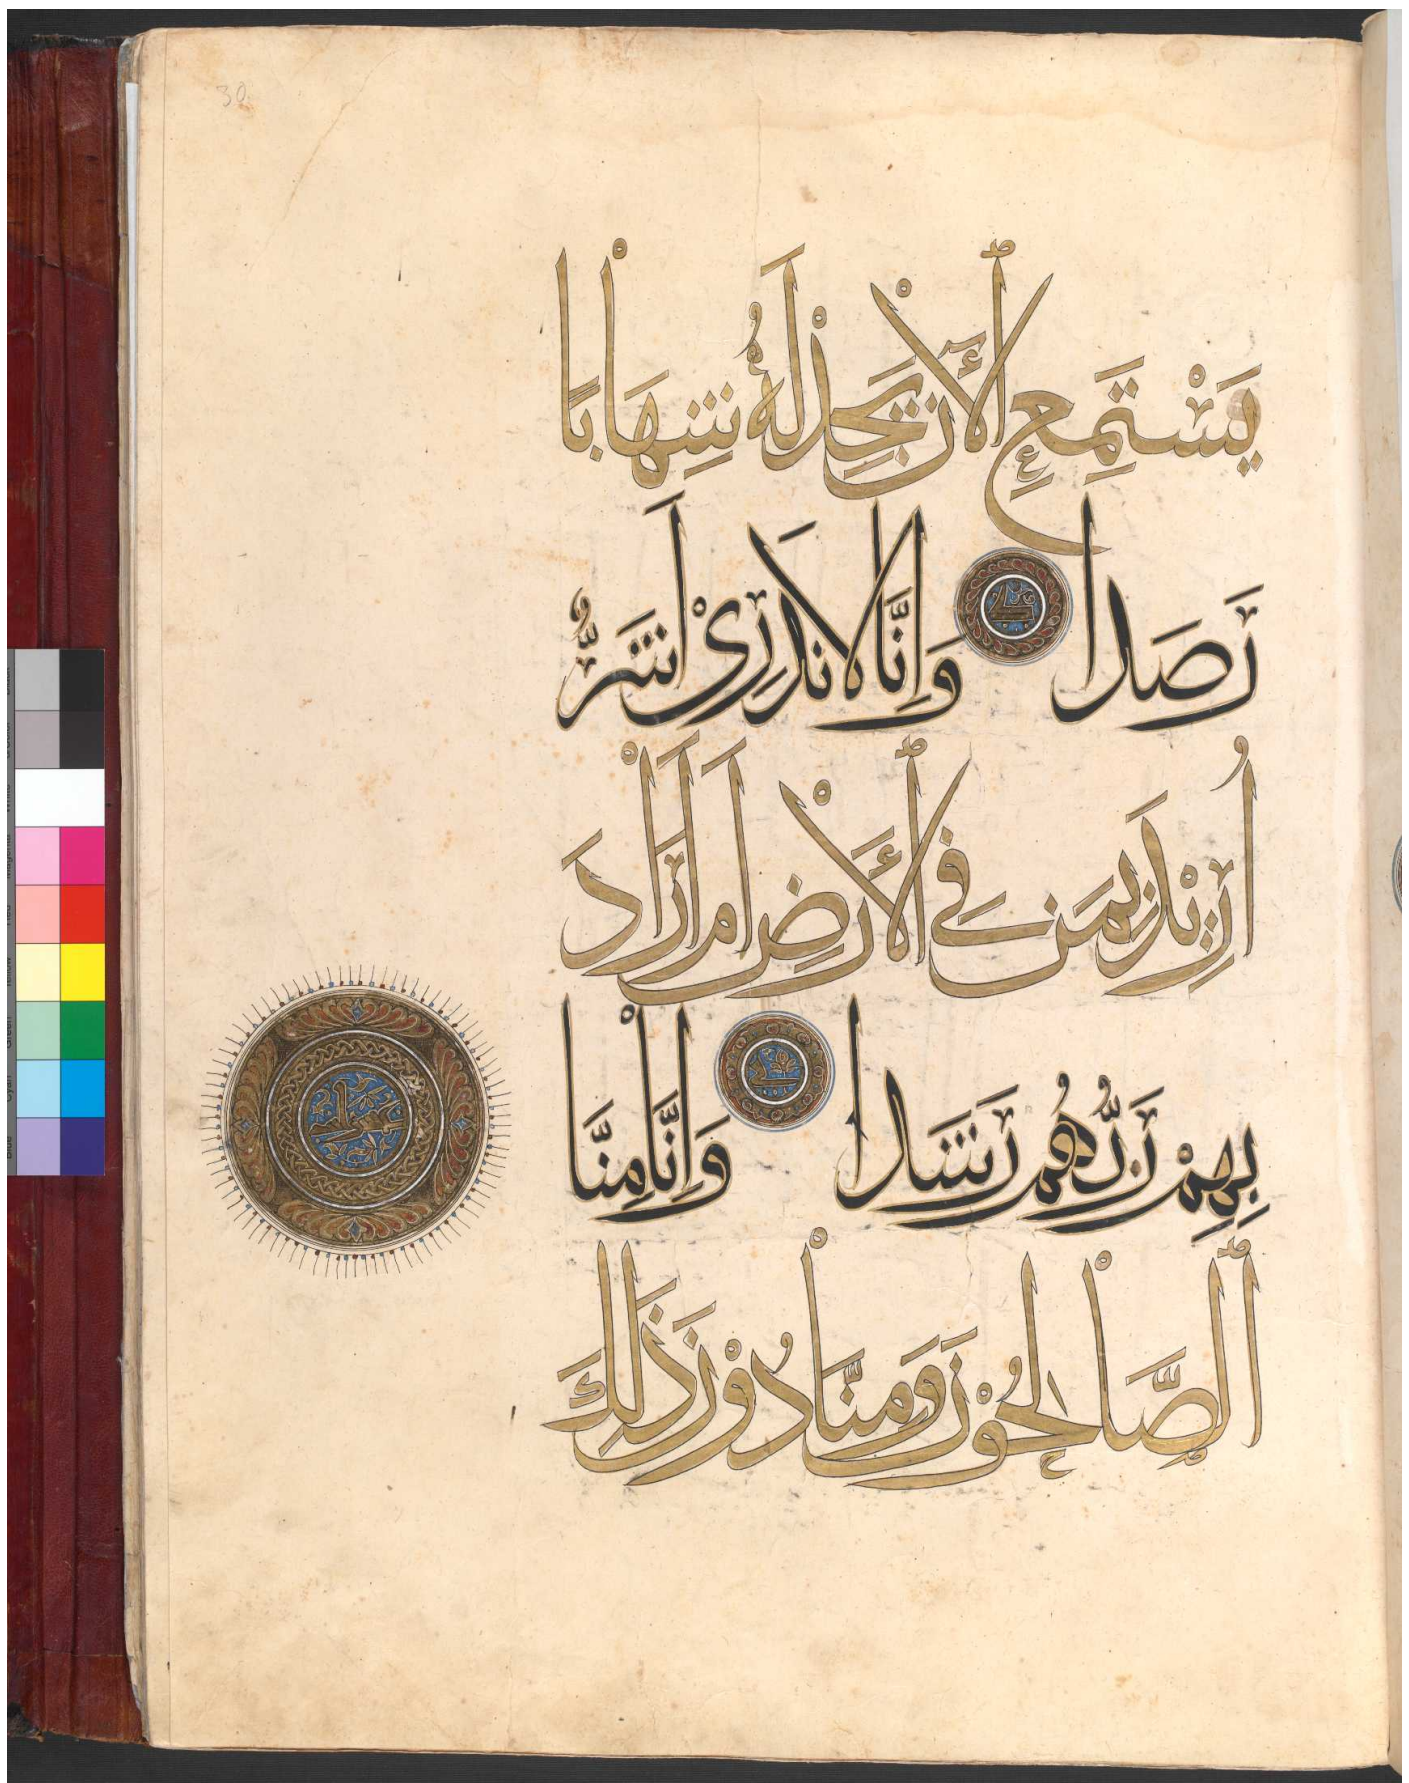 30
يَسْتَمِعِ ٱلْأٓنَ يَجِدْ لَهُۥ شِهَابًا
رَصَدا وَاِنَّا لَا نَدْرِىْ اَشَرٌّ
اُرِيْدَ بِمَن فِي ٱلْأَرْضِ اَمْ اَرَادَ
بِهِمْ رَبُّهُمْ رَشَدا وَاِنَّا مِنَّا
ٱلصَّالِحُوْنَ وَمِنَّا دُوْنَ ذَالِكَ